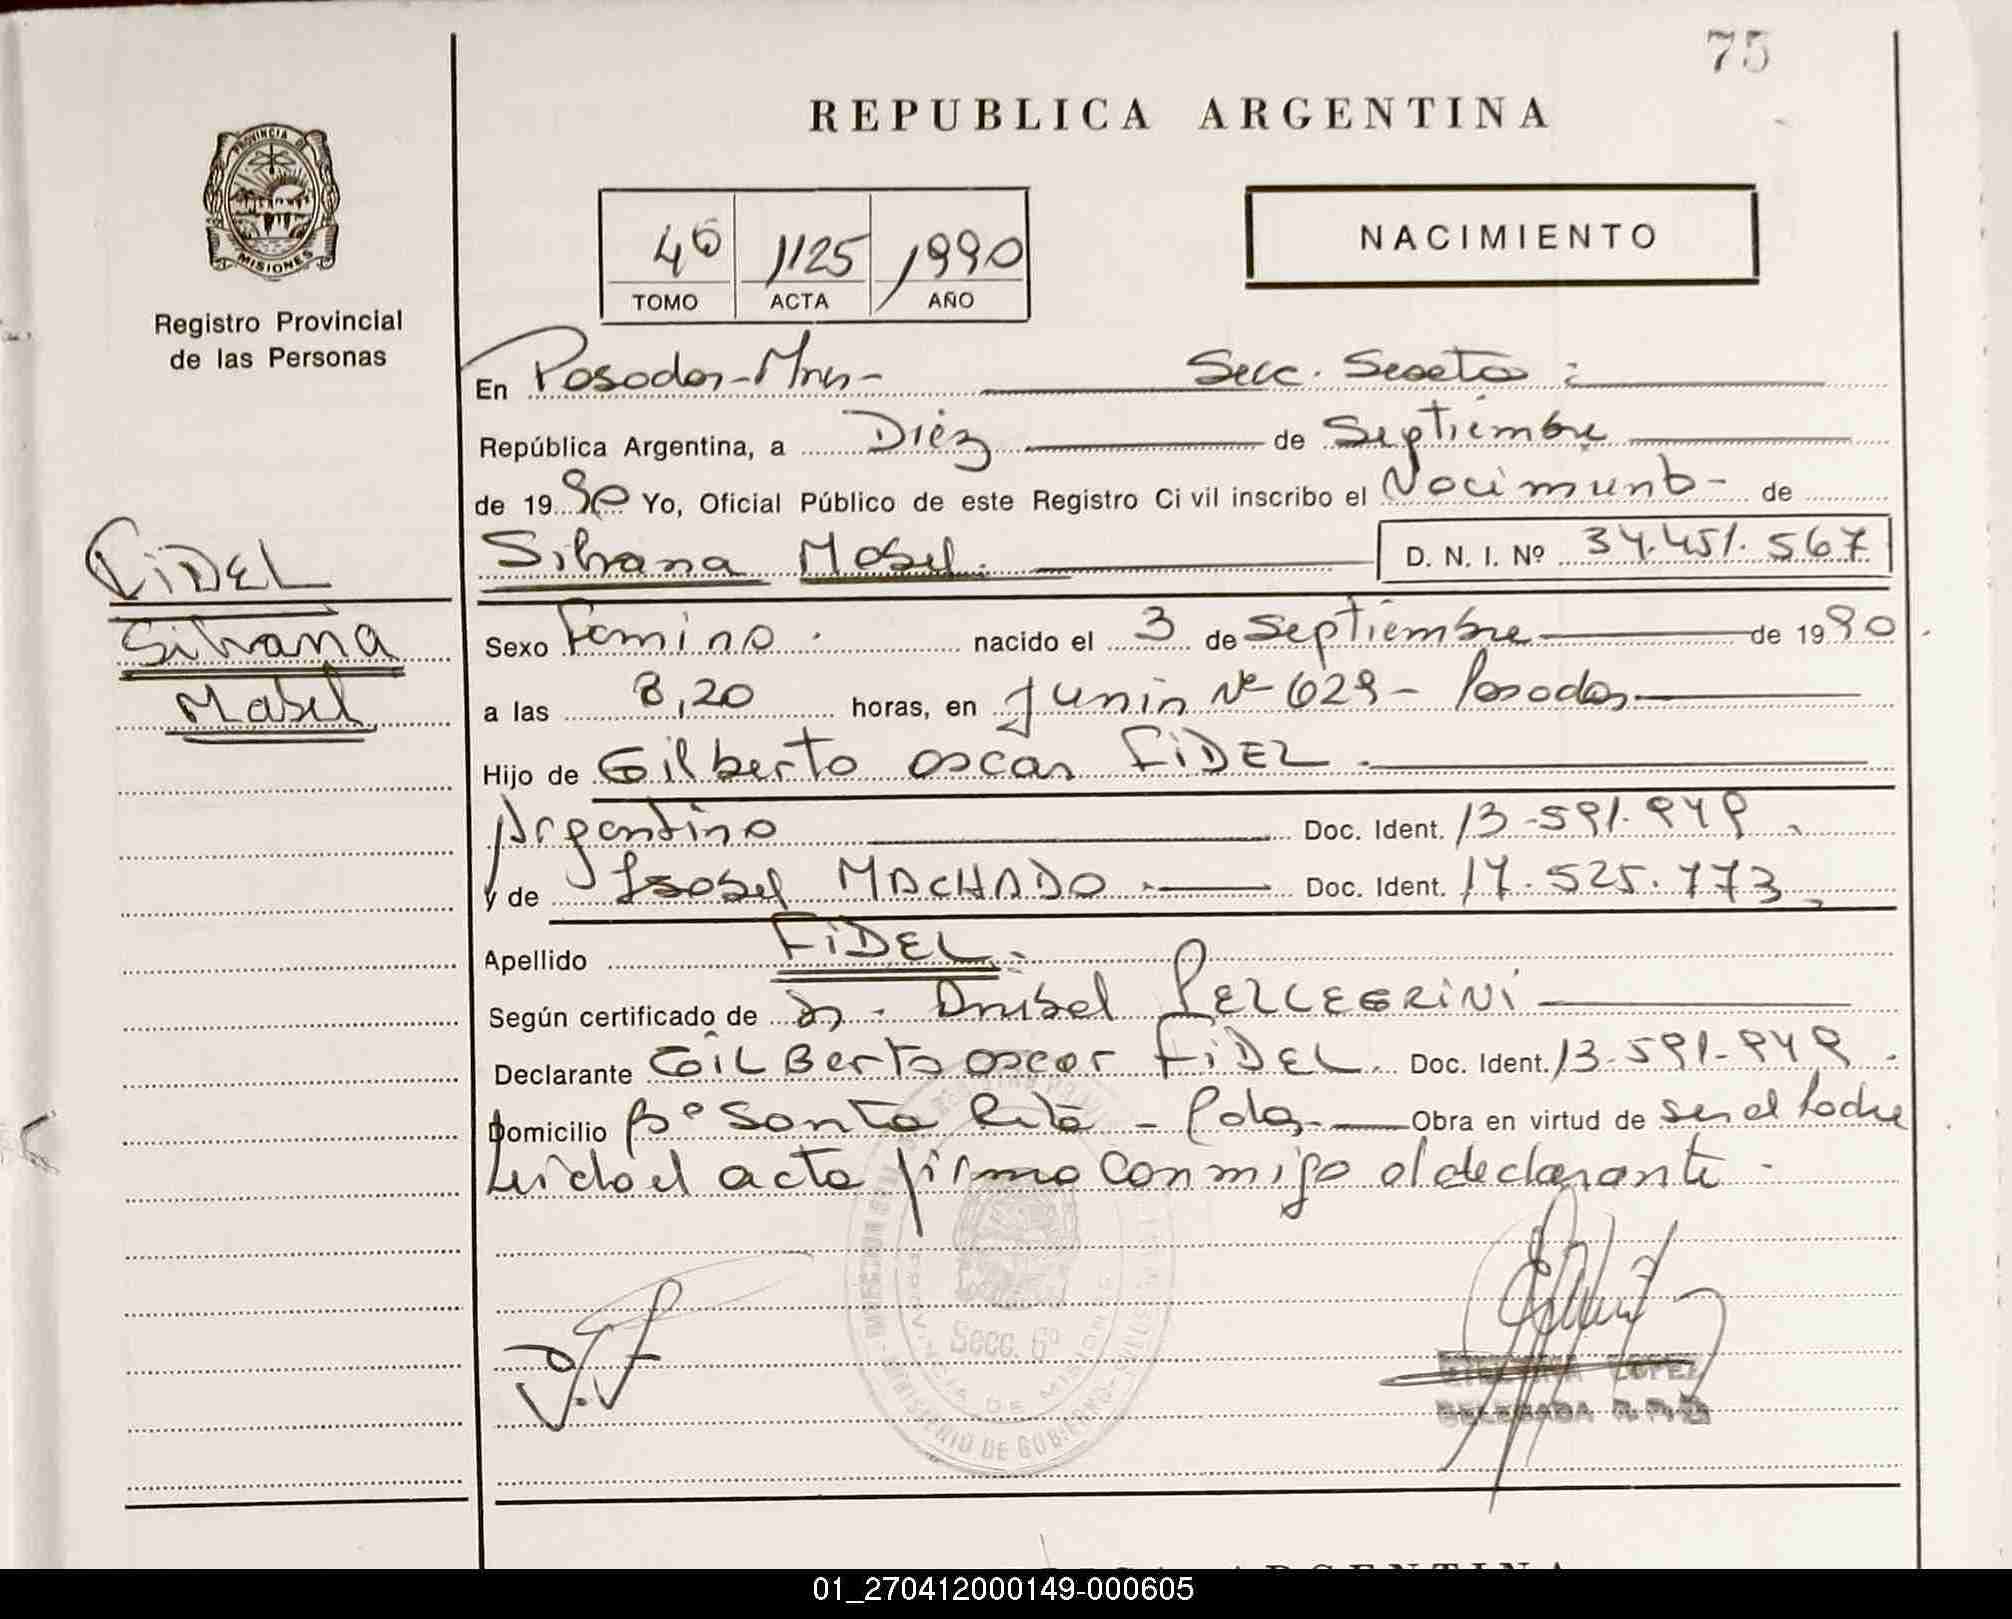 75
REPUBLICA ARGENTINA
PROVINCIA DE
MISIONES
Registro Provincial
de las Personas
46 1125 1990
TOMO ACTA AÑO
NACIMIENTO
En Posadas-Mnes- Secc. Sexta :
República Argentina, a Diéz de Septiembre
de 1990 Yo, Oficial Público de este Registro Civil inscribo el Nacimiento- de
Silvana Mabel. D. N. I. Nº 34.451.567
FiDEL
Silvana
Mabel
Sexo Femino. nacido el 3 de Septiembre de 1990
a las 8,20 horas, en Junin Nº 629- Posadas
Hijo de Gilberto oscar FiDEL.
Argentino Doc. Ident. 13.591.949
y de Isabel MACHADO.- Doc. Ident. 17.525.773
Apellido FiDEL.
Según certificado de Dr. Anibal PELLEGRINI
Declarante GiLBerto oscar FiDEL. Doc. Ident. 13.591.949.
Domicilio Bº Santa Rita - Pdas. Obra en virtud de ser el Padre
Leido el acta firma conmigo el declarante.
Secc. 6º
PROVINCIA DE MISIONES
MINISTERIO DE GOBIERNO
LOPEZ
DELEGADA R.P.P.
ARGENTINA
01_270412000149-000605